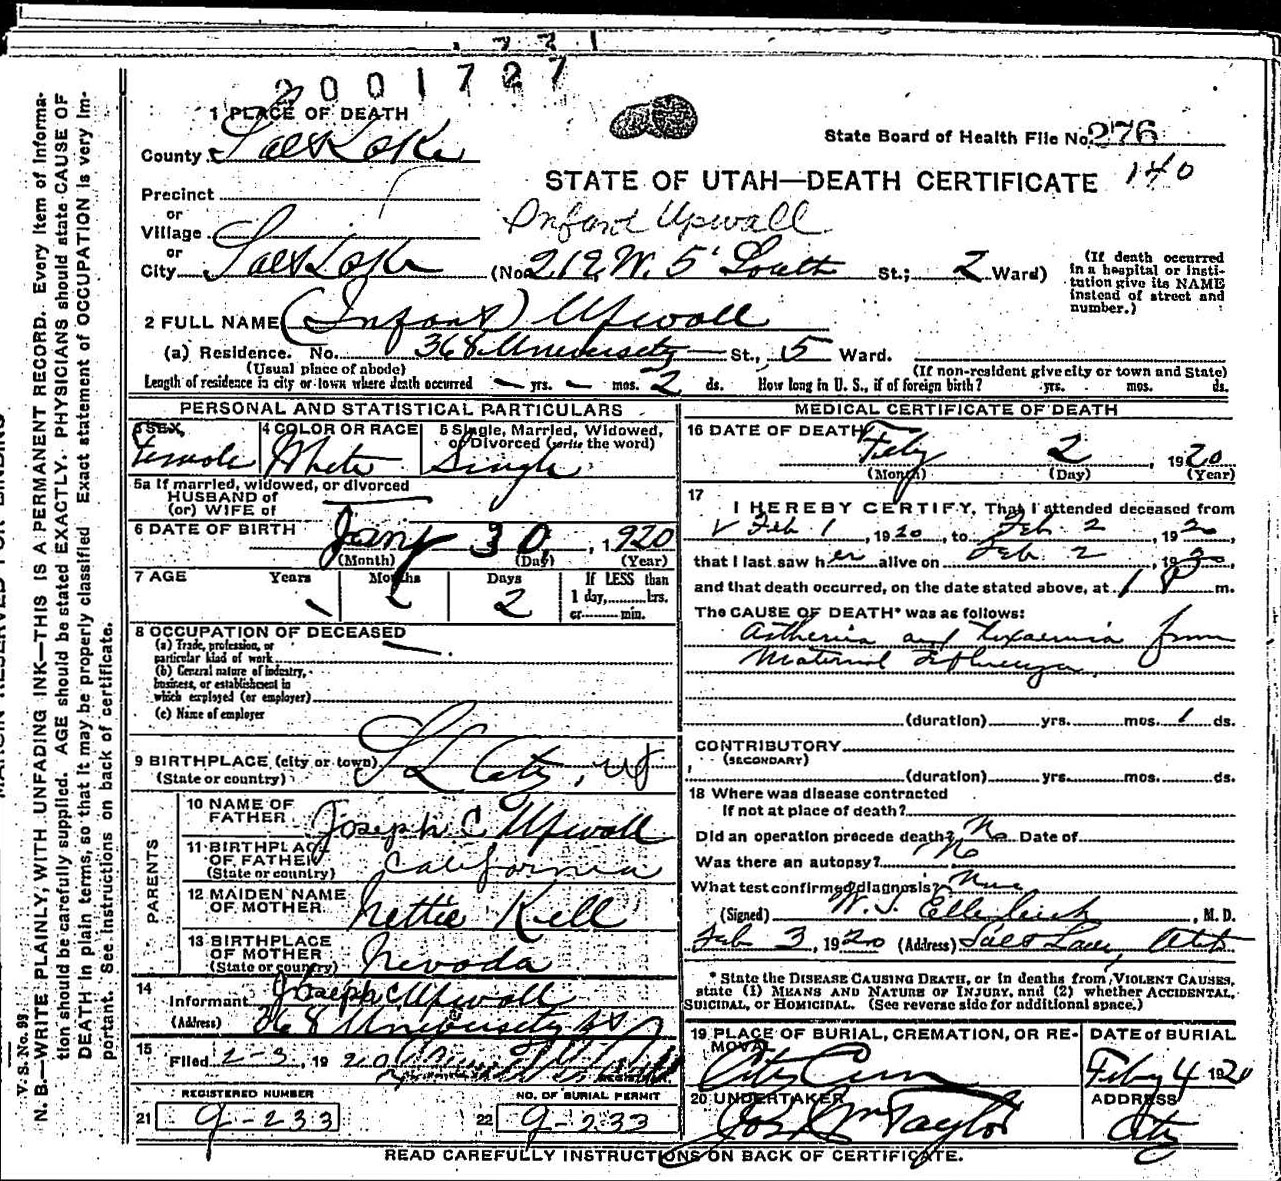 2001727
1 PLACE OF DEATH
State Board of Health File No. 276
County Salt Lake
140
STATE OF UTAH—DEATH CERTIFICATE
Precinct
or
Village
Infant Upwall
or
City Salt Lake (No. 219 W. 5 South St.; 2 Ward)
(If death occurred in a hospital or institution give its NAME instead of street and number.)
2 FULL NAME (Infant) Upwall
(a) Residence. No. 368 University St., 5 Ward.
(Usual place of abode) (If non-resident give city or town and State)
Length of residence in city or town where death occurred — yrs. — mos. 2 ds. How long in U. S., if of foreign birth? yrs. mos. ds.
PERSONAL AND STATISTICAL PARTICULARS
3 SEX 4 COLOR OR RACE 5 Single, Married, Widowed, or Divorced (write the word)
Female White Single
5a If married, widowed, or divorced
HUSBAND of
(or) WIFE of
6 DATE OF BIRTH Jany 30, 1920
(Month) (Day) (Year)
7 AGE Years Months Days If LESS than
1 day, hrs.
or min.
2
8 OCCUPATION OF DECEASED
(a) Trade, profession, or
particular kind of work
(b) General nature of industry,
business, or establishment in
which employed (or employer)
(c) Name of employer
9 BIRTHPLACE (city or town) S L City, Ut
(State or country)
PARENTS
10 NAME OF
FATHER Joseph C Upwall
11 BIRTHPLACE
OF FATHER California
(State or country)
12 MAIDEN NAME
OF MOTHER Nettie Kell
13 BIRTHPLACE
OF MOTHER Nevada
(State or country)
14
Informant Joseph C Upwall
(Address) 368 University St
15
Filed 2-3, 1920
REGISTERED NUMBER NO. OF BURIAL PERMIT
21 9-233 22 9-233
MEDICAL CERTIFICATE OF DEATH
16 DATE OF DEATH
Feby 2, 1920
(Month) (Day) (Year)
17
I HEREBY CERTIFY, That I attended deceased from
Feb 1, 1920, to Feb. 2, 1920,
that I last saw her alive on Feb 2, 1920,
and that death occurred, on the date stated above, at 1 P m.
The CAUSE OF DEATH* was as follows:
Asthenia and toxaemia from
Maternal Influenza
(duration) yrs. mos. 1 ds.
CONTRIBUTORY
(SECONDARY)
(duration) yrs. mos. ds.
18 Where was disease contracted
if not at place of death?
Did an operation precede death? No Date of
Was there an autopsy? No
What test confirmed diagnosis? None
(Signed) W. T. , M. D.
Feb 3, 1920 (Address) Salt Lake,
* State the DISEASE CAUSING DEATH, or in deaths from VIOLENT CAUSES,
state (1) MEANS AND NATURE OF INJURY, and (2) whether ACCIDENTAL,
SUICIDAL, or HOMICIDAL. (See reverse side for additional space.)
19 PLACE OF BURIAL, CREMATION, OR RE-
MOVAL
City Cem
DATE of BURIAL
Feby 4 1920
20 UNDERTAKER
Jos Wm Taylor
ADDRESS
City
READ CAREFULLY INSTRUCTIONS ON BACK OF CERTIFICATE.
V. S. No. 99
MARGIN RESERVED FOR BINDING
N. B.—WRITE PLAINLY, WITH UNFADING INK—THIS IS A PERMANENT RECORD. Every item of informa-
tion should be carefully supplied. AGE should be stated EXACTLY. PHYSICIANS should state CAUSE OF
DEATH in plain terms, so that it may be properly classified. Exact statement of OCCUPATION is very im-
portant. See instructions on back of certificate.